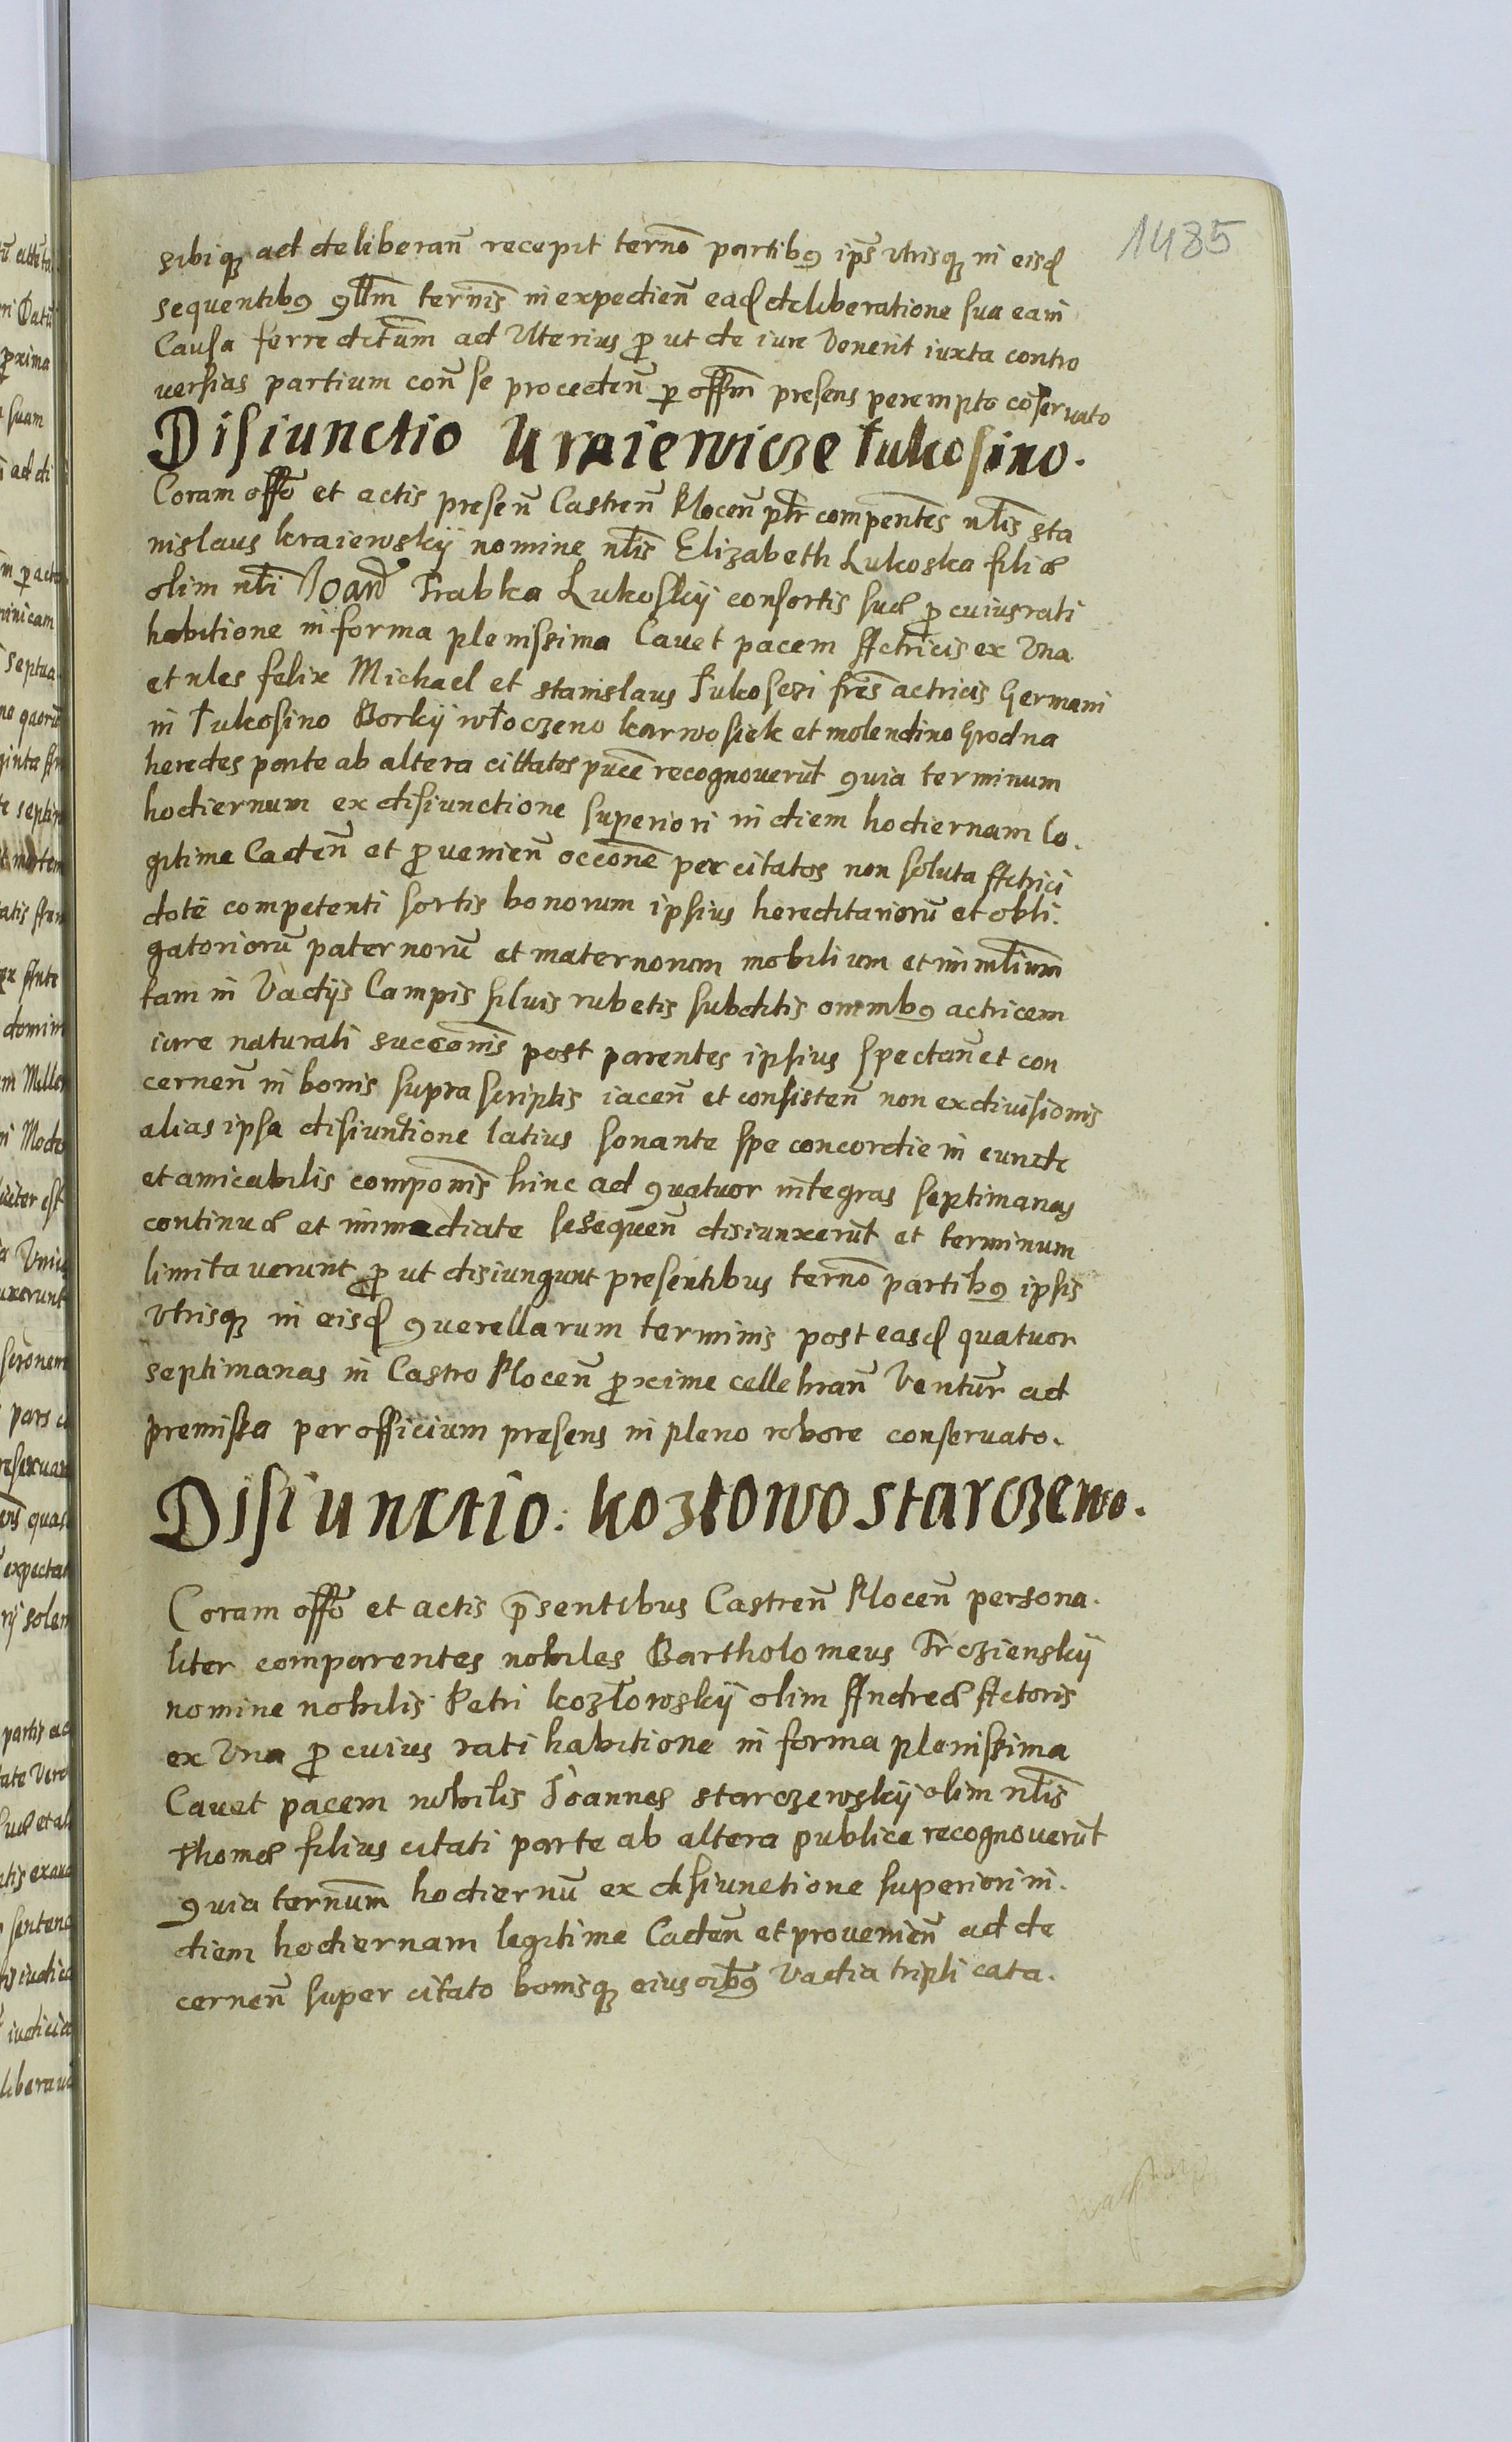 1485
sibiqꝫ ad deliberañ recepit termō partibꝯ ip̃s vtrisqꝫ in eisd
sequentibꝯ qllm̃ termīs in expedieñ ead deliberatione sua eam
Causa ferre decr̃um ad Vlterius ꝓ ut de iure Venerit iuxta contro
versias partium coñ se procedeñ ꝑ offm̃ presens perempto cōseruato
Disiunctio Kraiewicze łukosino.
Coram offō et actis preseñ Castreñ Ploceñ ptr̃ compentẽs nlĩs Sta
nislaus kraiewskÿ nomine nlĩs Elizabeth Lukoska filiæ
olim nlĩ Joañ Trabka Lukoskÿ consortis suæ ꝓ cuius rati
habitione in forma plenissima Cauet pacem Actricis ex Vna
et nłes felix Michael et stanislaus łukosczi frẽs actricis Germani
in łukosino Borkÿ włoczeno karwosiek et molendino Grodna
heredes parte ab altera cittatos puc̃e recognouerũt quia terminum
hodiernum ex disiunctione superiori in diem hodiernam le.
gitime Cadeñ et ꝓvenieñ occonẽ per citatos non soluta Actrici
dotẽ competenti sortis bonorum ipsius hereditariorũ et obli.
gatoriorũ paternorũ et maternorum mobilium et inmlĩum
tam in Vadÿs Campis siluis rubetis subditis omnibꝯ actricem
iure naturali succonĩs post parentes ipsius spectañ et con
cerneñ in bonis supra scriptis iaceñ et consisteñ non exdivisionis
alias ipsa disiunctione latius sonante spe concordie in eunde
et amicabilis componĩs hinc ad quatuor integras septimanas
continuæ et immediate se sequeñ disiunxerũt et terminum
limitaverunt ꝓ ut disiungunt presentibus termō partibꝯ ipsis
Vtrisqꝫ in eisd querellarum terminis post easd quatuor
septimanas in Castro Ploceñ ꝓxime cellebrañ Ventur̃ ad
premissa per officium presens in pleno robore conseruato.
Disiunctio. kozłowo starczewo.
Coram offō et actis p̃sentibus Castreñ Ploceñ persona.
liter comparentes nobiles Bartholomeus Trczienskÿ
nomine nobilis Petri kozłowskÿ olim Andreæ Actoris
ex Vna ꝓ cuius rati habitione in forma plenissima
Cauet pacem nobilis Joannes starczewskÿ olim nlĩs
Thomæ filius citati parte ab altera publice recognouerũt
quia termũm hodiernũ ex disiunctione superiori in.
diem hodiernam legitime Cadeñ et provenieñ ad de
cerneñ super citato bonisqꝫ eius oĩbꝯ Vadia triplicata.